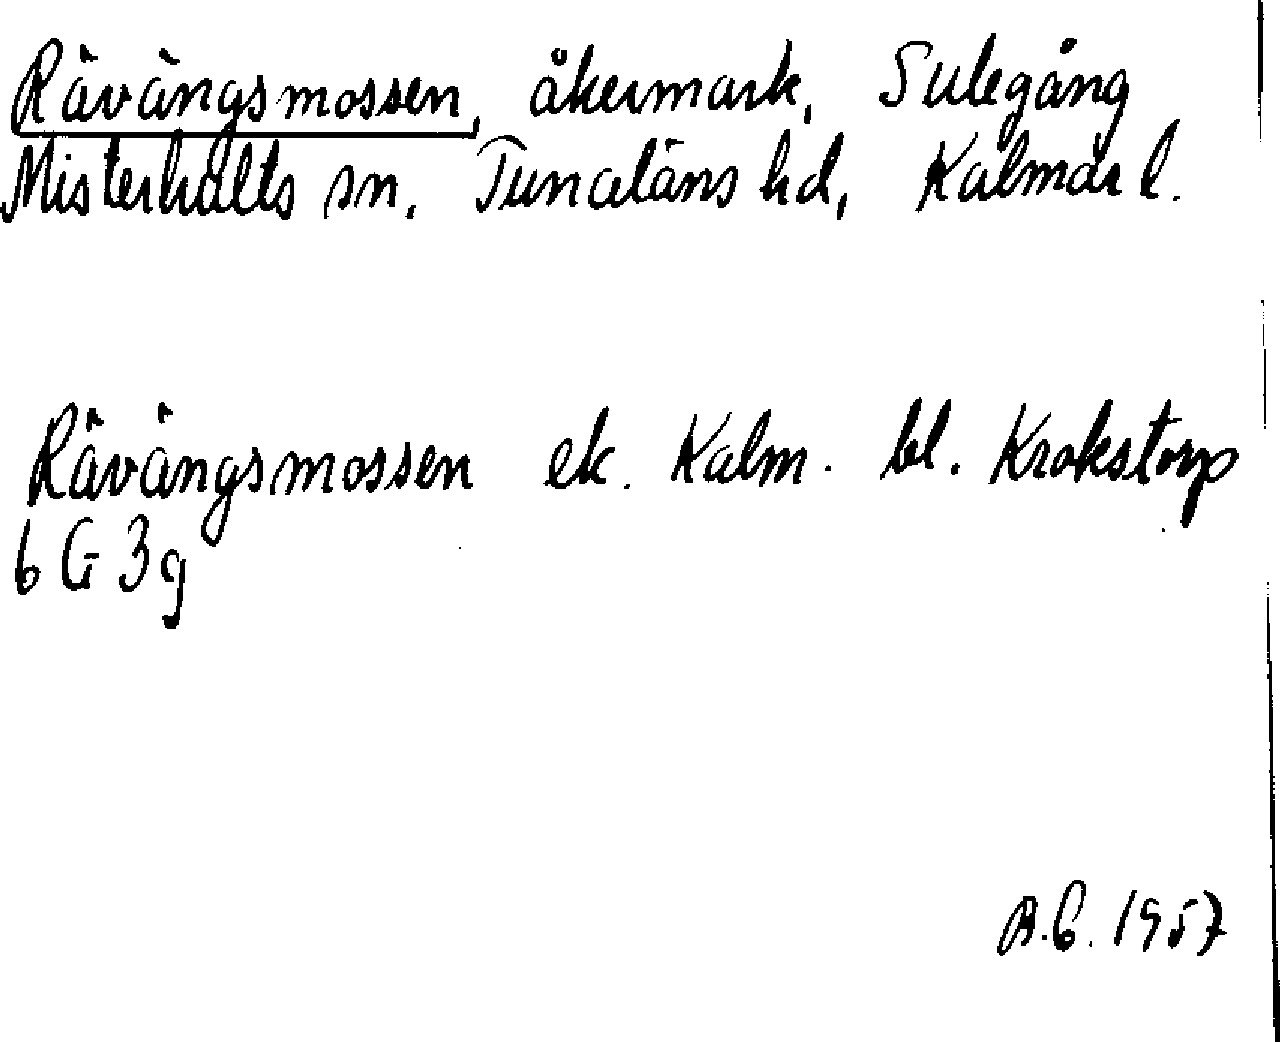 Rävängsmossen, åkermark, Sulegång
Misterhults sn, Tunaläns hd, Kalmar l.
Rävängsmossen ek. Kalm. bl. Krokstorp
6 G 3g
B.G. 1957